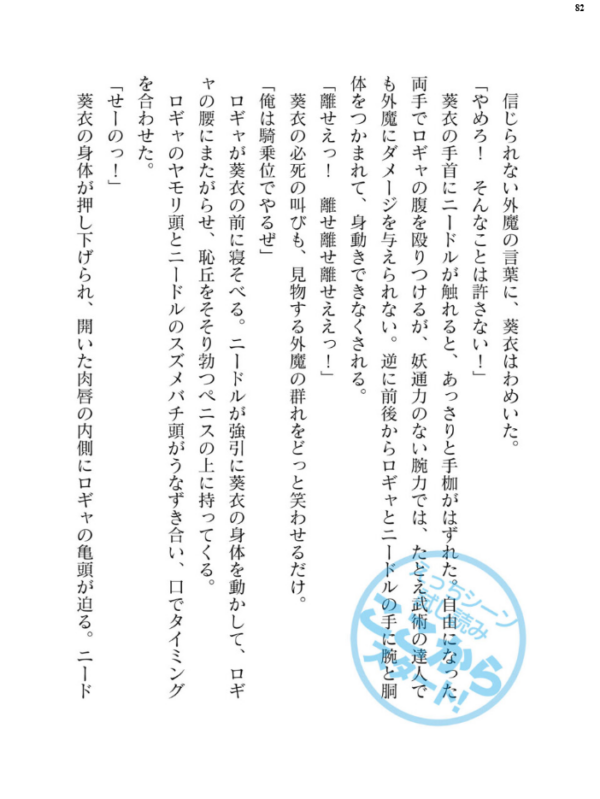 82
信じられない外魔の言葉に、葵衣はわめいた。
「やめろ！　そんなことは許さない！」
葵衣の手首にニードルが触れると、あっさりと手枷がはずれた。自由になった
両手でロギャの腹を殴りつけるが、妖通力のない腕力では、たとえ武術の達人で
も外魔にダメージを与えられない。逆に前後からロギャとニードルの手に腕と胴
体をつかまれて、身動きできなくされる。
「離せえっ！　離せ離せ離せええっ！」
葵衣の必死の叫びも、見物する外魔の群れをどっと笑わせるだけ。
「俺は騎乗位でやるぜ」
ロギャが葵衣の前に寝そべる。ニードルが強引に葵衣の身体を動かして、ロギ
ャの腰にまたがらせ、恥丘をそそり勃つペニスの上に持ってくる。
ロギャのヤモリ頭とニードルのスズメバチ頭がうなずき合い、口でタイミング
を合わせた。
「せーのっ！」
葵衣の身体が押し下げられ、開いた肉唇の内側にロギャの亀頭が迫る。ニード
えっちシーン
試し読み
ここから
スタート!